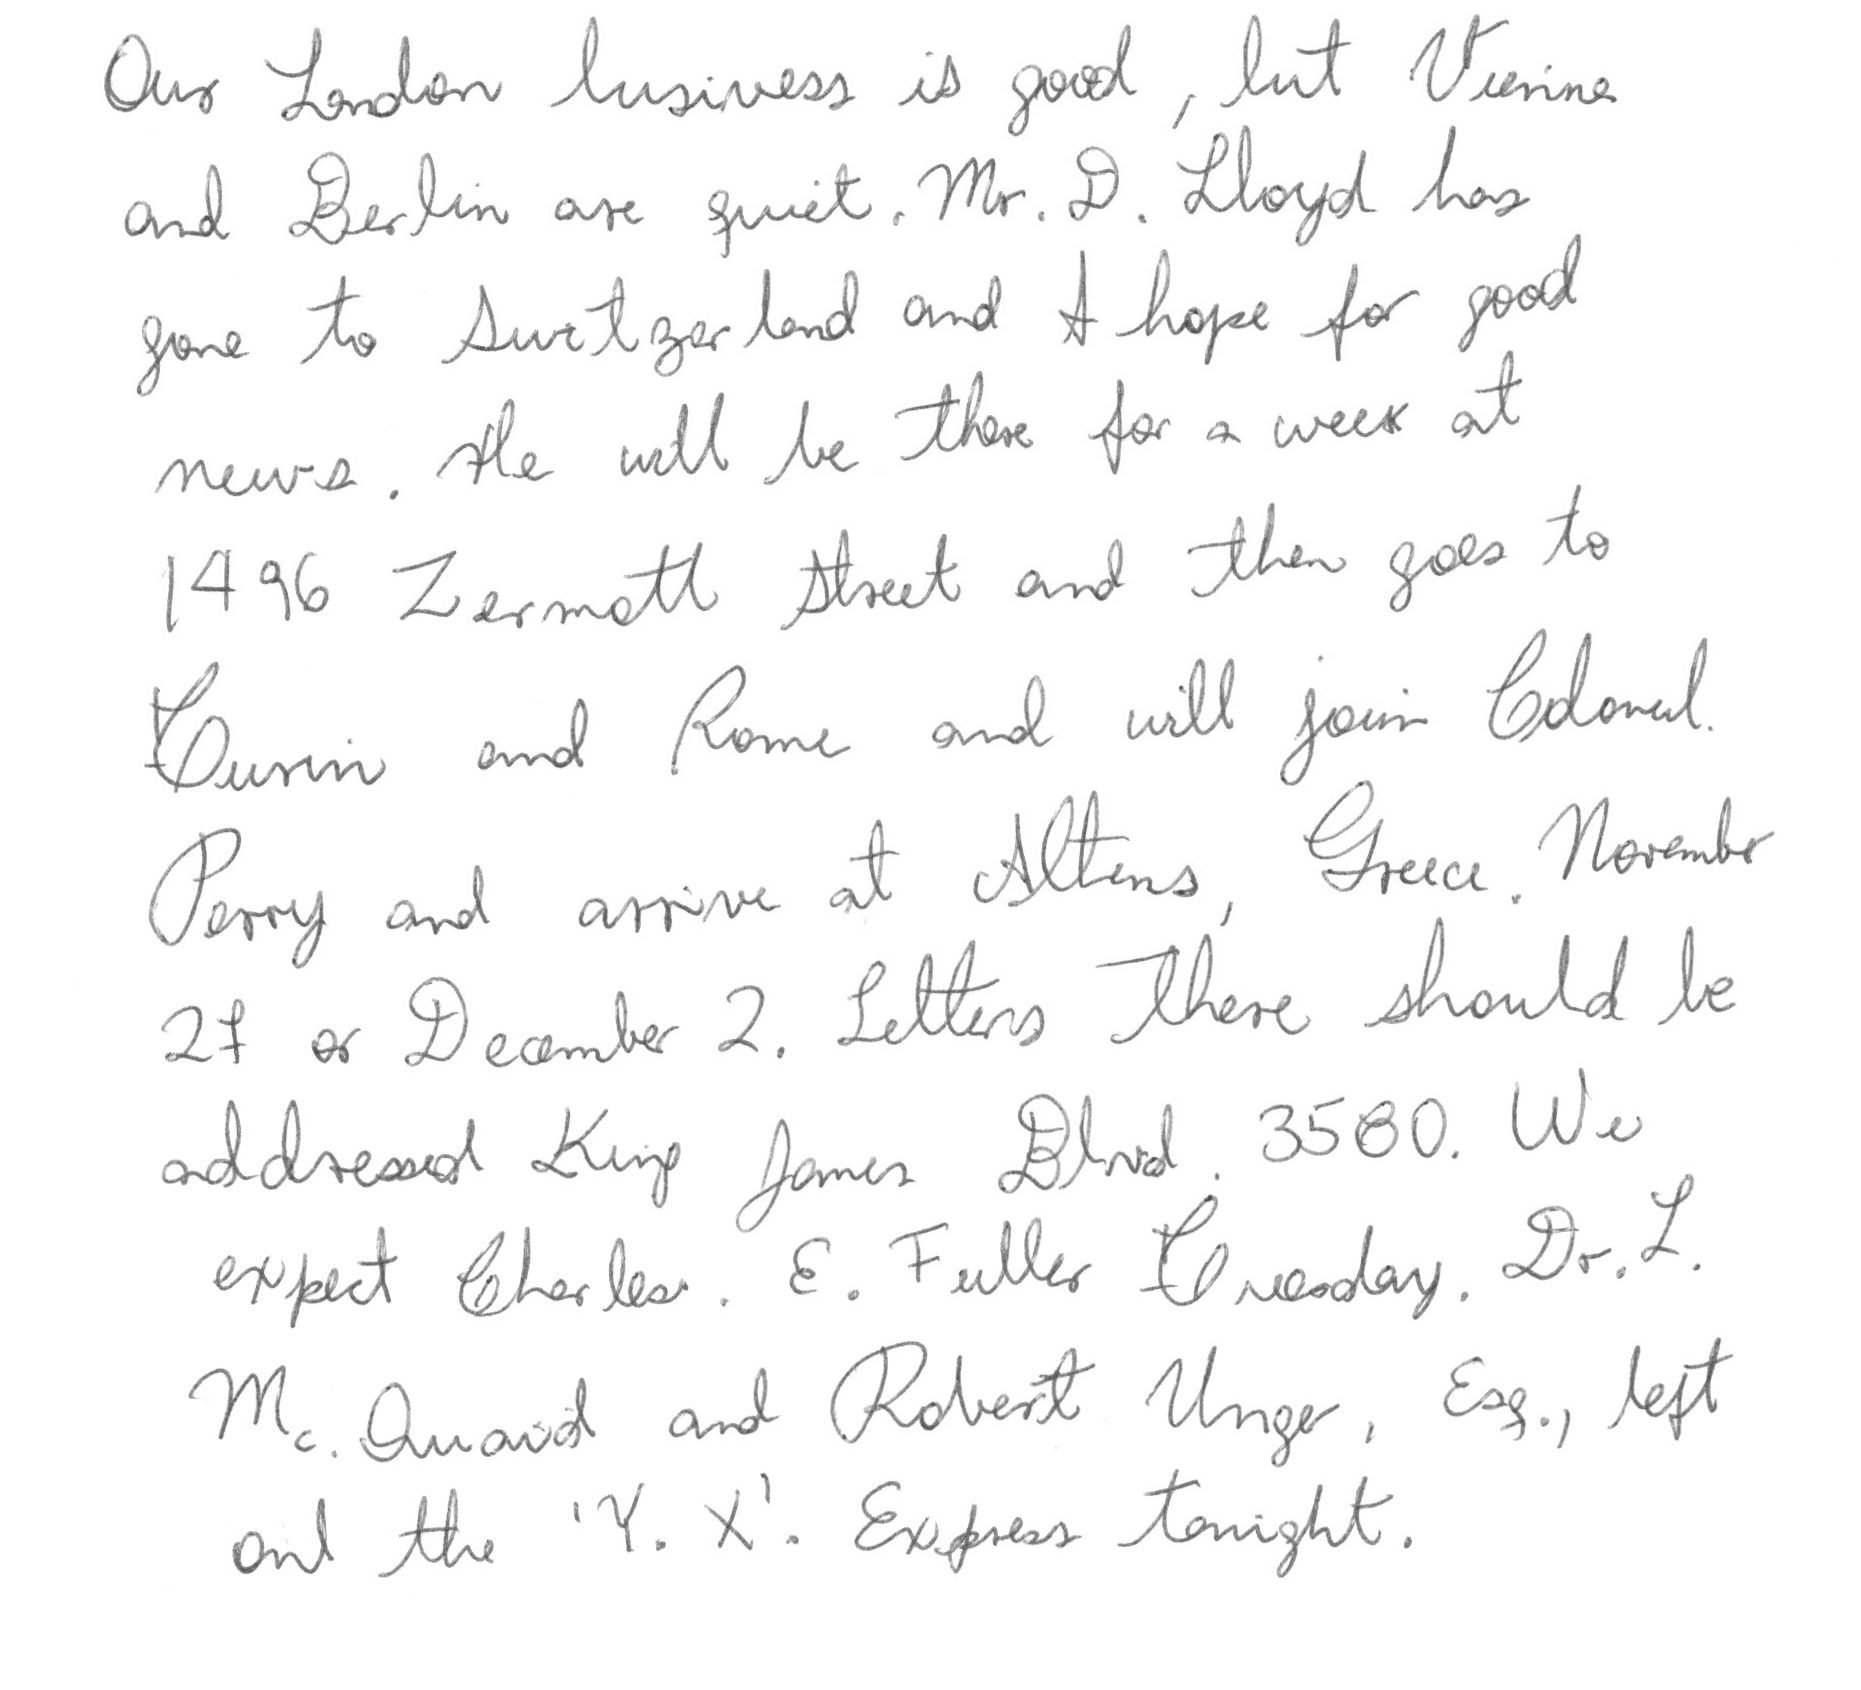 Our London business is good, but Vienna
and Berlin are quiet. Mr. D. Lloyd has
gone to Switzerland and I hope for good
news. He will be there for a week at
1496 Zermott Street and then goes to
Turin and Rome and will join Colonel.
Perry and arrive at Athens, Greece. November
27 or December 2. Letters there should be
addressed King James Blvd. 3580. We
expect Charles. E. Fuller Tuesday. Dr. L.
Mc. Quaid and Robert Unger, Esq., left
ont the 'Y. X'. Express tonight.